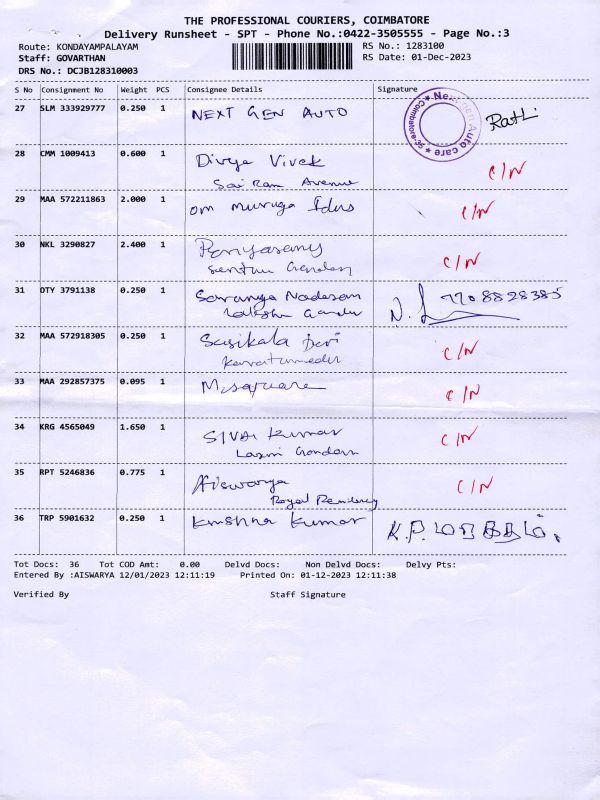 THE PROFESSIONAL COURIERS, COIMBATORE
Delivery Runsheet - SPT - Phone No.:0422-3505555 - Page No.:3
Route: KONDAYAMPALAYAM RS No.: 1283100
Staff: GOVARTHAN RS Date: 01-Dec-2023
DRS No.: DCJB128310003
S No Consignment No Weight PCS Consignee Details Signature
27 SLM 333929777 0.250 1 NEXT GEN AUTO
Nexgen Auto care
Coimbatore-35
28 CMM 1009413 0.600 1 Divya Vivek
Sai Ram Avenue C/N
29 MAA 572211863 2.000 1 om muruga C/N
30 NKL 3290827 2.400 1 C/N
31 OTY 3791138 0.250 1 Saranya Nadesan 7708828385
32 MAA 572918305 0.250 1 Sasikala Devi C/N
33 MAA 292857375 0.095 1 Msquare C/N
34 KRG 4565049 1.650 1 SIVA Kumar C/N
35 RPT 5246836 0.775 1 Aiswarya C/N
Royal Residency
36 TRP 5901632 0.250 1 Krishna Kumar
Tot Docs: 36 Tot COD Amt: 0.00 Delvd Docs: Non Delvd Docs: Delvy Pts:
Entered By :AISWARYA 12/01/2023 12:11:19 Printed On: 01-12-2023 12:11:38
Verified By Staff Signature